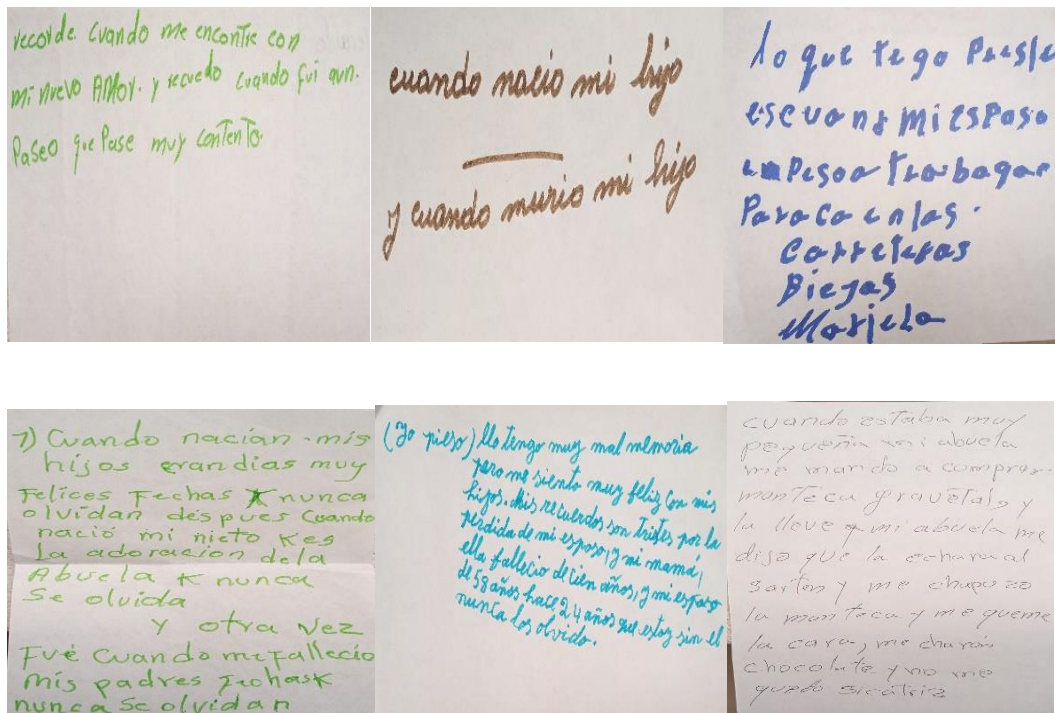 recorde cuando me encontre con
mi nuevo AMor. y recuedo cuando fui aun.
Paseo que Pase muy contento.
cuando nacio mi hijo
y cuando murio mi hijo
lo que tego Presle
escuans mi esposo
empesoa trabagar
Para ca enlas.
Carreteras
Biejas
Mariela
7) Cuando nacían mis
hijos erandias muy
Felices Fechas K nunca
olvidan después Cuando
nació mi nieto Kes
La adoracion dela
Abuela K nunca
Se olvida
Y otra vez
Fué Cuando mefallecio
Mis padres FechasK
nunca Se olvidan
(Yo pieso) Llo tengo muy mal memoria
pero me siento muy feliz con mis
hijos. Mis recuerdos son tristes por la
perdida de mi esposo, y mi mamá,
ella fallecio de cien años, y mi esposo
de 58 años hace 24 años que estoy sin el
nunca los olvido.
cuando estaba muy
pequeña mi abuela
me mando a comprar
manteca y
la lleve a mi abuela me
dijo que la echara al
sarten y me chupuzo
la manteca y me queme
la cara, me charon
chocolate y no me
quedo sicátriz